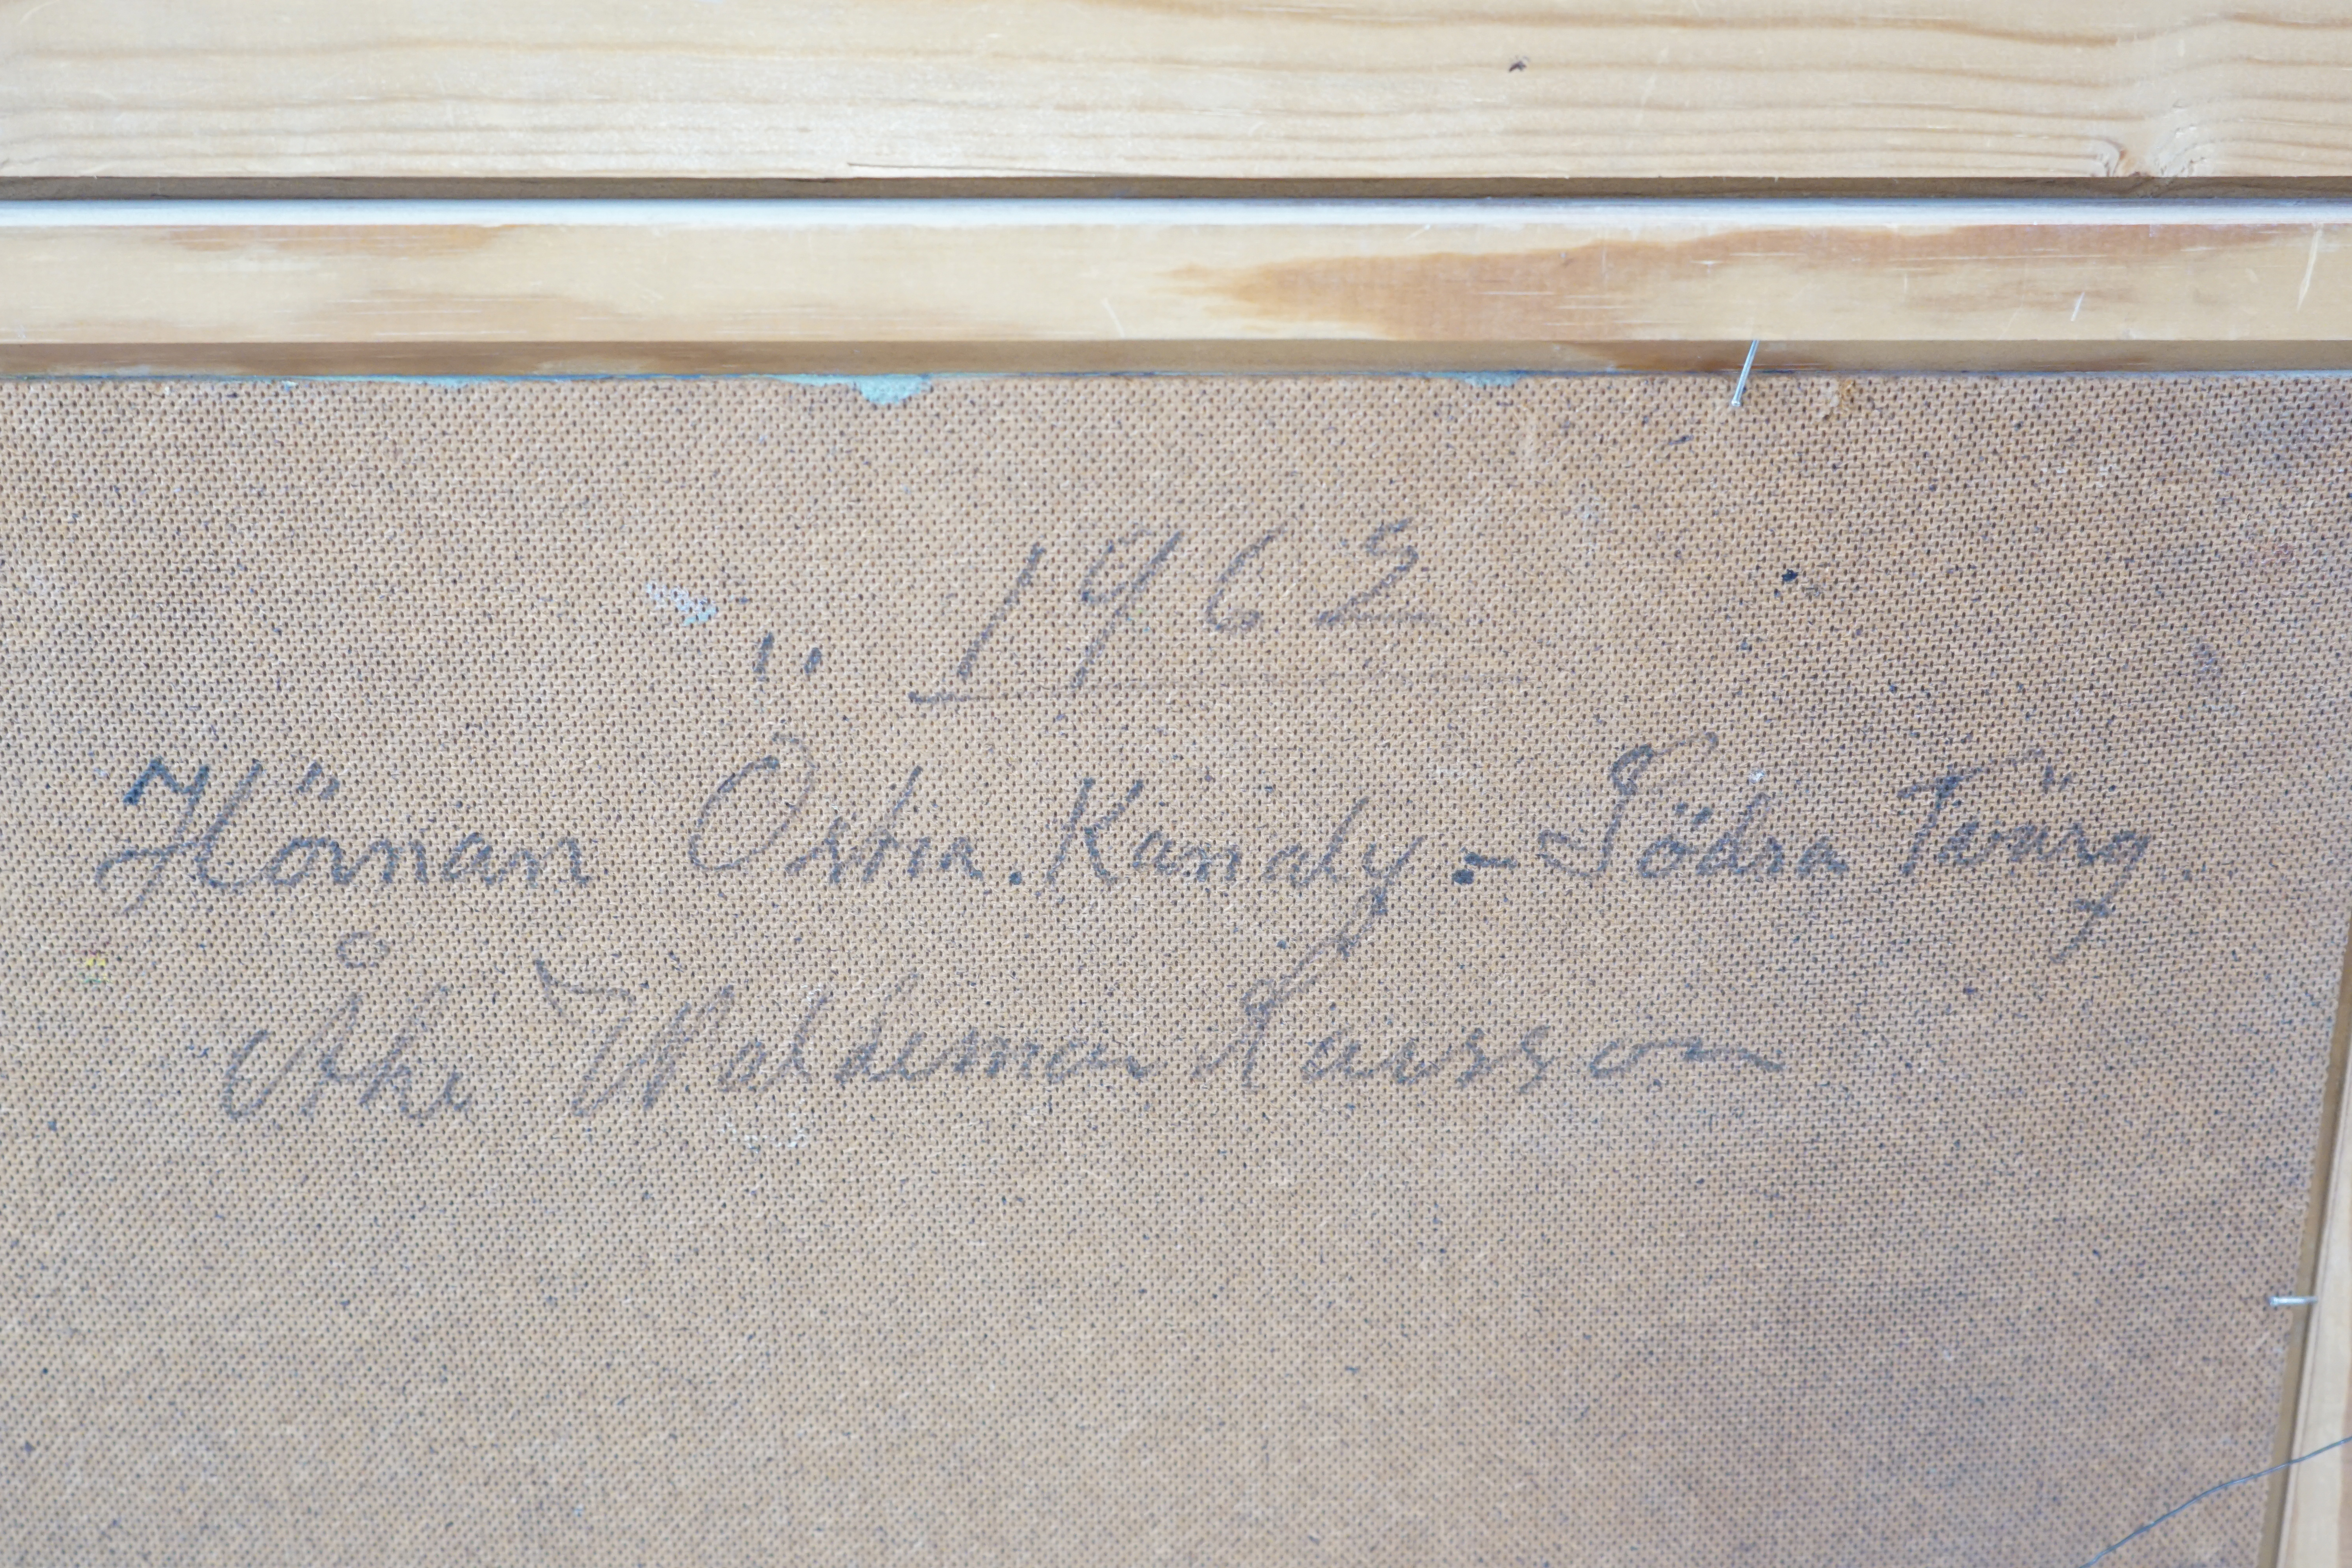 1962
Hörnan Östra. Kanaly.- Södra Tvärg.
Åke Waldemar Larsson